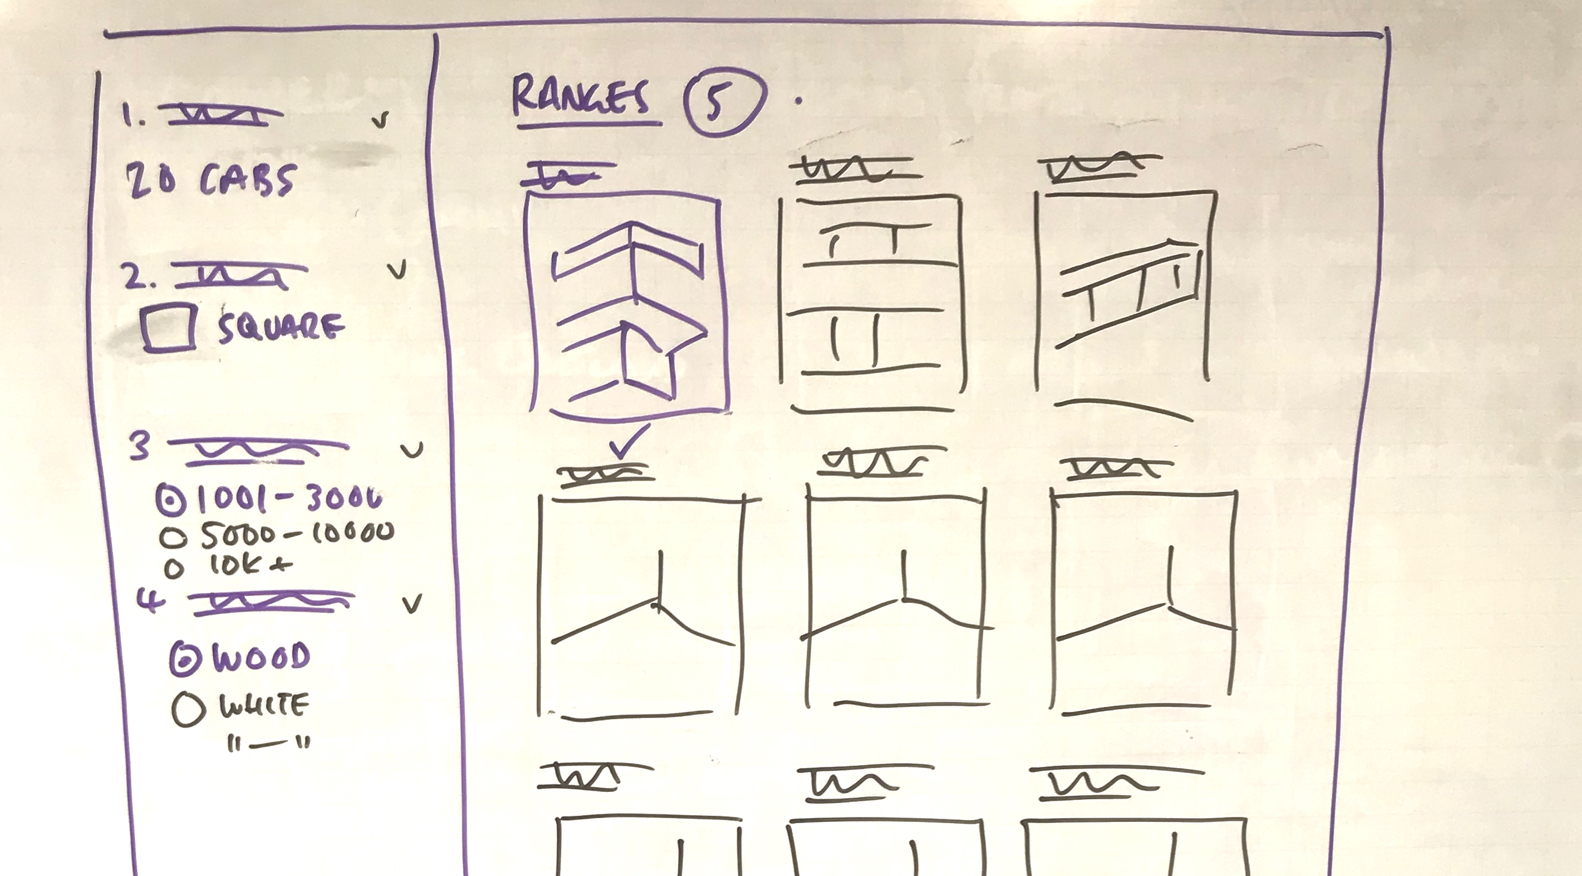 1.
20 CABS
2.
SQUARE
3
1001-3000
5000-10000
10K+
4
WOOD
WHITE
"—"
RANGES 5